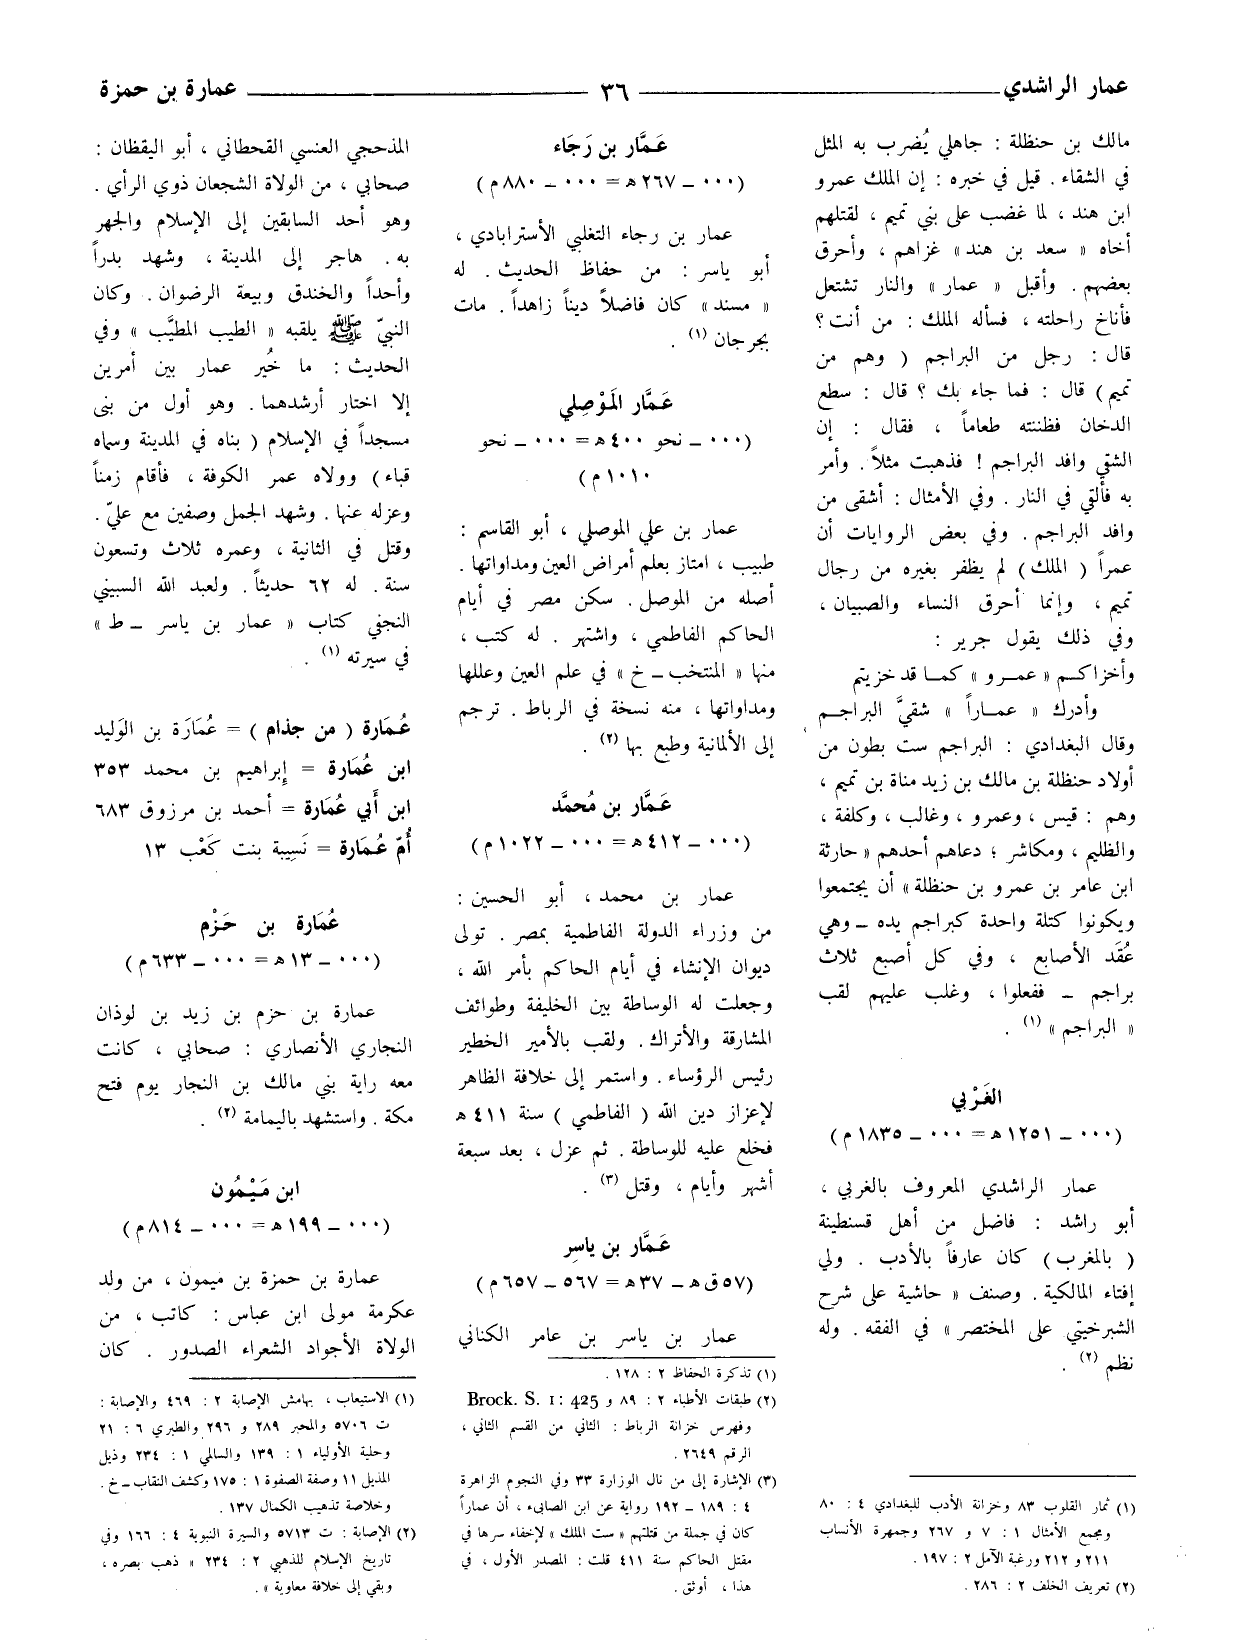 عمار الراشدي ٣٦ عمارة بن حمزة
مالك بن حنظلة : جاهلي يُضرب به المثل
في الشقاء . قيل في خبره : إن الملك عمرو
ابن هند ، لما غضب على بني تميم ، لقتلهم
أخاه « سعد بن هند » غزاهم ، وأحرق
بعضهم . وأقبل « عمار » والنار تشتعل
فأناخ راحلته ، فسأله الملك : من أنت ؟
قال : رجل من البراجم ( وهم من
تميم ) قال : فما جاء بك ؟ قال : سطع
الدخان فظننته طعاماً ، فقال : إن
الشقي وافد البراجم ! فذهبت مثلاً . وأمر
به فألقي في النار . وفي الأمثال : أشقى من
وافد البراجم . وفي بعض الروايات أن
عمراً ( الملك ) لم يظفر بغيره من رجال
تميم ، وإنما أحرق النساء والصبيان ،
وفي ذلك يقول جرير :
وأخزاكم « عمرو » كما قد خزيتم
وأدرك « عماراً » شقيَّ البراجم
وقال البغدادي : البراجم ست بطون من
أولاد حنظلة بن مالك بن زيد مناة بن تميم ،
وهم : قيس ، وعمرو ، وغالب ، وكلفة ،
والظليم ، ومكاشر ؛ دعاهم أحدهم « حارثة
ابن عامر بن عمرو بن حنظلة » أن يجتمعوا
ويكونوا كتلة واحدة كبراجم يده ــ وهي
عُقَد الأصابع ، وفي كل أصبع ثلاث
براجم ــ ففعلوا ، وغلب عليهم لقب
« البراجم » (١) .
الغَرْبي
(٠٠٠ ــ ١٢٥١ هـ = ٠٠٠ ــ ١٨٣٥ م)
عمار الراشدي المعروف بالغربي ،
أبو راشد : فاضل من أهل قسنطينة
( بالمغرب ) كان عارفاً بالأدب . ولي
إفتاء المالكية . وصنف « حاشية على شرح
الشبرخيتي على المختصر » في الفقه . وله
نظم (٢) .
(١) ثمار القلوب ٨٣ وخزانة الأدب للبغدادي ٤ : ٨٠
ومجمع الأمثال ١ : ٧ و ٢٦٧ وجمهرة الأنساب
٢١١ و ٢١٢ ورغبة الآمل ٢ : ١٩٧ .
(٢) تعريف الخلف ٢ : ٢٨٦ .
عَمَّار بن رَجَاء
(٠٠٠ ــ ٢٦٧ هـ = ٠٠٠ ــ ٨٨٠ م)
عمار بن رجاء التغلبي الأسترابادي ،
أبو ياسر : من حفاظ الحديث . له
« مسند » كان فاضلاً ديناً زاهداً . مات
بجرجان (١) .
عَمَّار المَوْصِلي
(٠٠٠ ــ نحو ٤٠٠ هـ = ٠٠٠ ــ نحو
١٠١٠ م)
عمار بن علي الموصلي ، أبو القاسم :
طبيب ، امتاز بعلم أمراض العين ومداواتها .
أصله من الموصل . سكن مصر في أيام
الحاكم الفاطمي ، واشتهر . له كتب ،
منها « المنتخب ــ خ » في علم العين وعللها
ومداواتها ، منه نسخة في الرباط . ترجم
إلى الألمانية وطبع بها (٢) .
عَمَّار بن مُحمَّد
(٠٠٠ ــ ٤١٢ هـ = ٠٠٠ ــ ١٠٢٢ م)
عمار بن محمد ، أبو الحسين :
من وزراء الدولة الفاطمية بمصر . تولى
ديوان الإنشاء في أيام الحاكم بأمر الله ،
وجعلت له الوساطة بين الخليفة وطوائف
المشارقة والأتراك . ولقب بالأمير الخطير
رئيس الرؤساء . واستمر إلى خلافة الظاهر
لإعزاز دين الله ( الفاطمي ) سنة ٤١١ هـ
فخلع عليه للوساطة . ثم عزل ، بعد سبعة
أشهر وأيام ، وقتل (٣) .
عَمَّار بن ياسِر
(٥٧ ق هـ ــ ٣٧ هـ = ٥٦٧ ــ ٦٥٧ م)
عمار بن ياسر بن عامر الكناني
(١) تذكرة الحفاظ ٢ : ١٢٨ .
(٢) طبقات الأطباء ٢ : ٨٩ و Brock. S. 1: 425
وفهرس خزانة الرباط : الثاني من القسم الثاني ،
الرقم ٢٦٤٩ .
(٣) الإشارة إلى من نال الوزارة ٣٣ وفي النجوم الزاهرة
٤ : ١٨٩ ــ ١٩٢ رواية عن ابن الصابىء ، أن عماراً
كان في جملة من قتلتهم « ست الملك » لإخفاء سرها في
مقتل الحاكم سنة ٤١١ قلت : المصدر الأول ، في
هذا ، أوثق .
المذحجي العنسي القحطاني ، أبو اليقظان :
صحابي ، من الولاة الشجعان ذوي الرأي .
وهو أحد السابقين إلى الإسلام والجهر
به . هاجر إلى المدينة ، وشهد بدراً
وأحداً والخندق وبيعة الرضوان . وكان
النبيّ ﷺ يلقبه « الطيب المطيَّب » وفي
الحديث : ما خُير عمار بين أمرين
إلا اختار أرشدهما . وهو أول من بنى
مسجداً في الإسلام ( بناه في المدينة وسماه
قباء ) وولاه عمر الكوفة ، فأقام زمناً
وعزله عنها . وشهد الجمل وصفين مع عليّ .
وقتل في الثانية ، وعمره ثلاث وتسعون
سنة . له ٦٢ حديثاً . ولعبد الله السبيتي
النجفي كتاب « عمار بن ياسر ــ ط »
في سيرته (١) .
عُمَارة ( من جذام ) = عُمَارَة بن الوَليد
ابن عُمَارة = إبراهيم بن محمد ٣٥٣
ابن أبي عُمَارة = أحمد بن مرزوق ٦٨٣
أُمّ عُمَارة = نَسِيبة بنت كَعْب ١٣
عُمَارة بن حَزْم
(٠٠٠ ــ ١٣ هـ = ٠٠٠ ــ ٦٣٣ م)
عمارة بن حزم بن زيد بن لوذان
النجاري الأنصاري : صحابي ، كانت
معه راية بني مالك بن النجار يوم فتح
مكة . واستشهد باليمامة (٢) .
ابن مَيْمُون
(٠٠٠ ــ ١٩٩ هـ = ٠٠٠ ــ ٨١٤ م)
عمارة بن حمزة بن ميمون ، من ولد
عكرمة مولى ابن عباس : كاتب ، من
الولاة الأجواد الشعراء الصدور . كان
(١) الاستيعاب ، بهامش الإصابة ٢ : ٤٦٩ والإصابة :
ت ٥٧٠٦ والمحبر ٢٨٩ و ٢٩٦ والطبري ٦ : ٢١
وحلية الأولياء ١ : ١٣٩ والسالمي ١ : ٢٣٤ وذيل
المذيل ١١ وصفة الصفوة ١ : ١٧٥ وكشف النقاب ــ خ .
وخلاصة تذهيب الكمال ١٣٧ .
(٢) الإصابة : ت ٥٧١٣ والسيرة النبوية ٤ : ١٦٦ وفي
تاريخ الإسلام للذهبي ٢ : ٢٣٤ « ذهب بصره ،
وبقي إلى خلافة معاوية » .